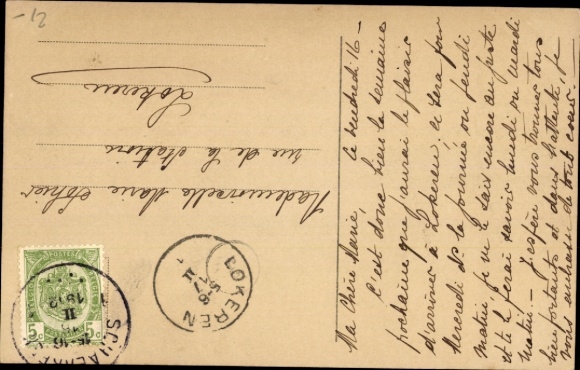 Ma Chère Marie, ce vendredi 16 -
C'est donc bien la semaine
prochaine que j'aurai le plaisir
d'arriver à Lokeren; ce sera pour
Mercredi ds la journée ou jeudi
matin, je ne le sais encore au juste
et te le ferai savoir lundi ou mardi
matin. - J'espère vous trouver tous
bien portants et dans l'attente, je
vous embrasse de tout coeur.
Mademoiselle Marie
rue de la Station
Lokeren
-12
POSTES
5c 5c
SCHAERBEEK
15-16
II
1912
LOKEREN
5-6
17
II
1